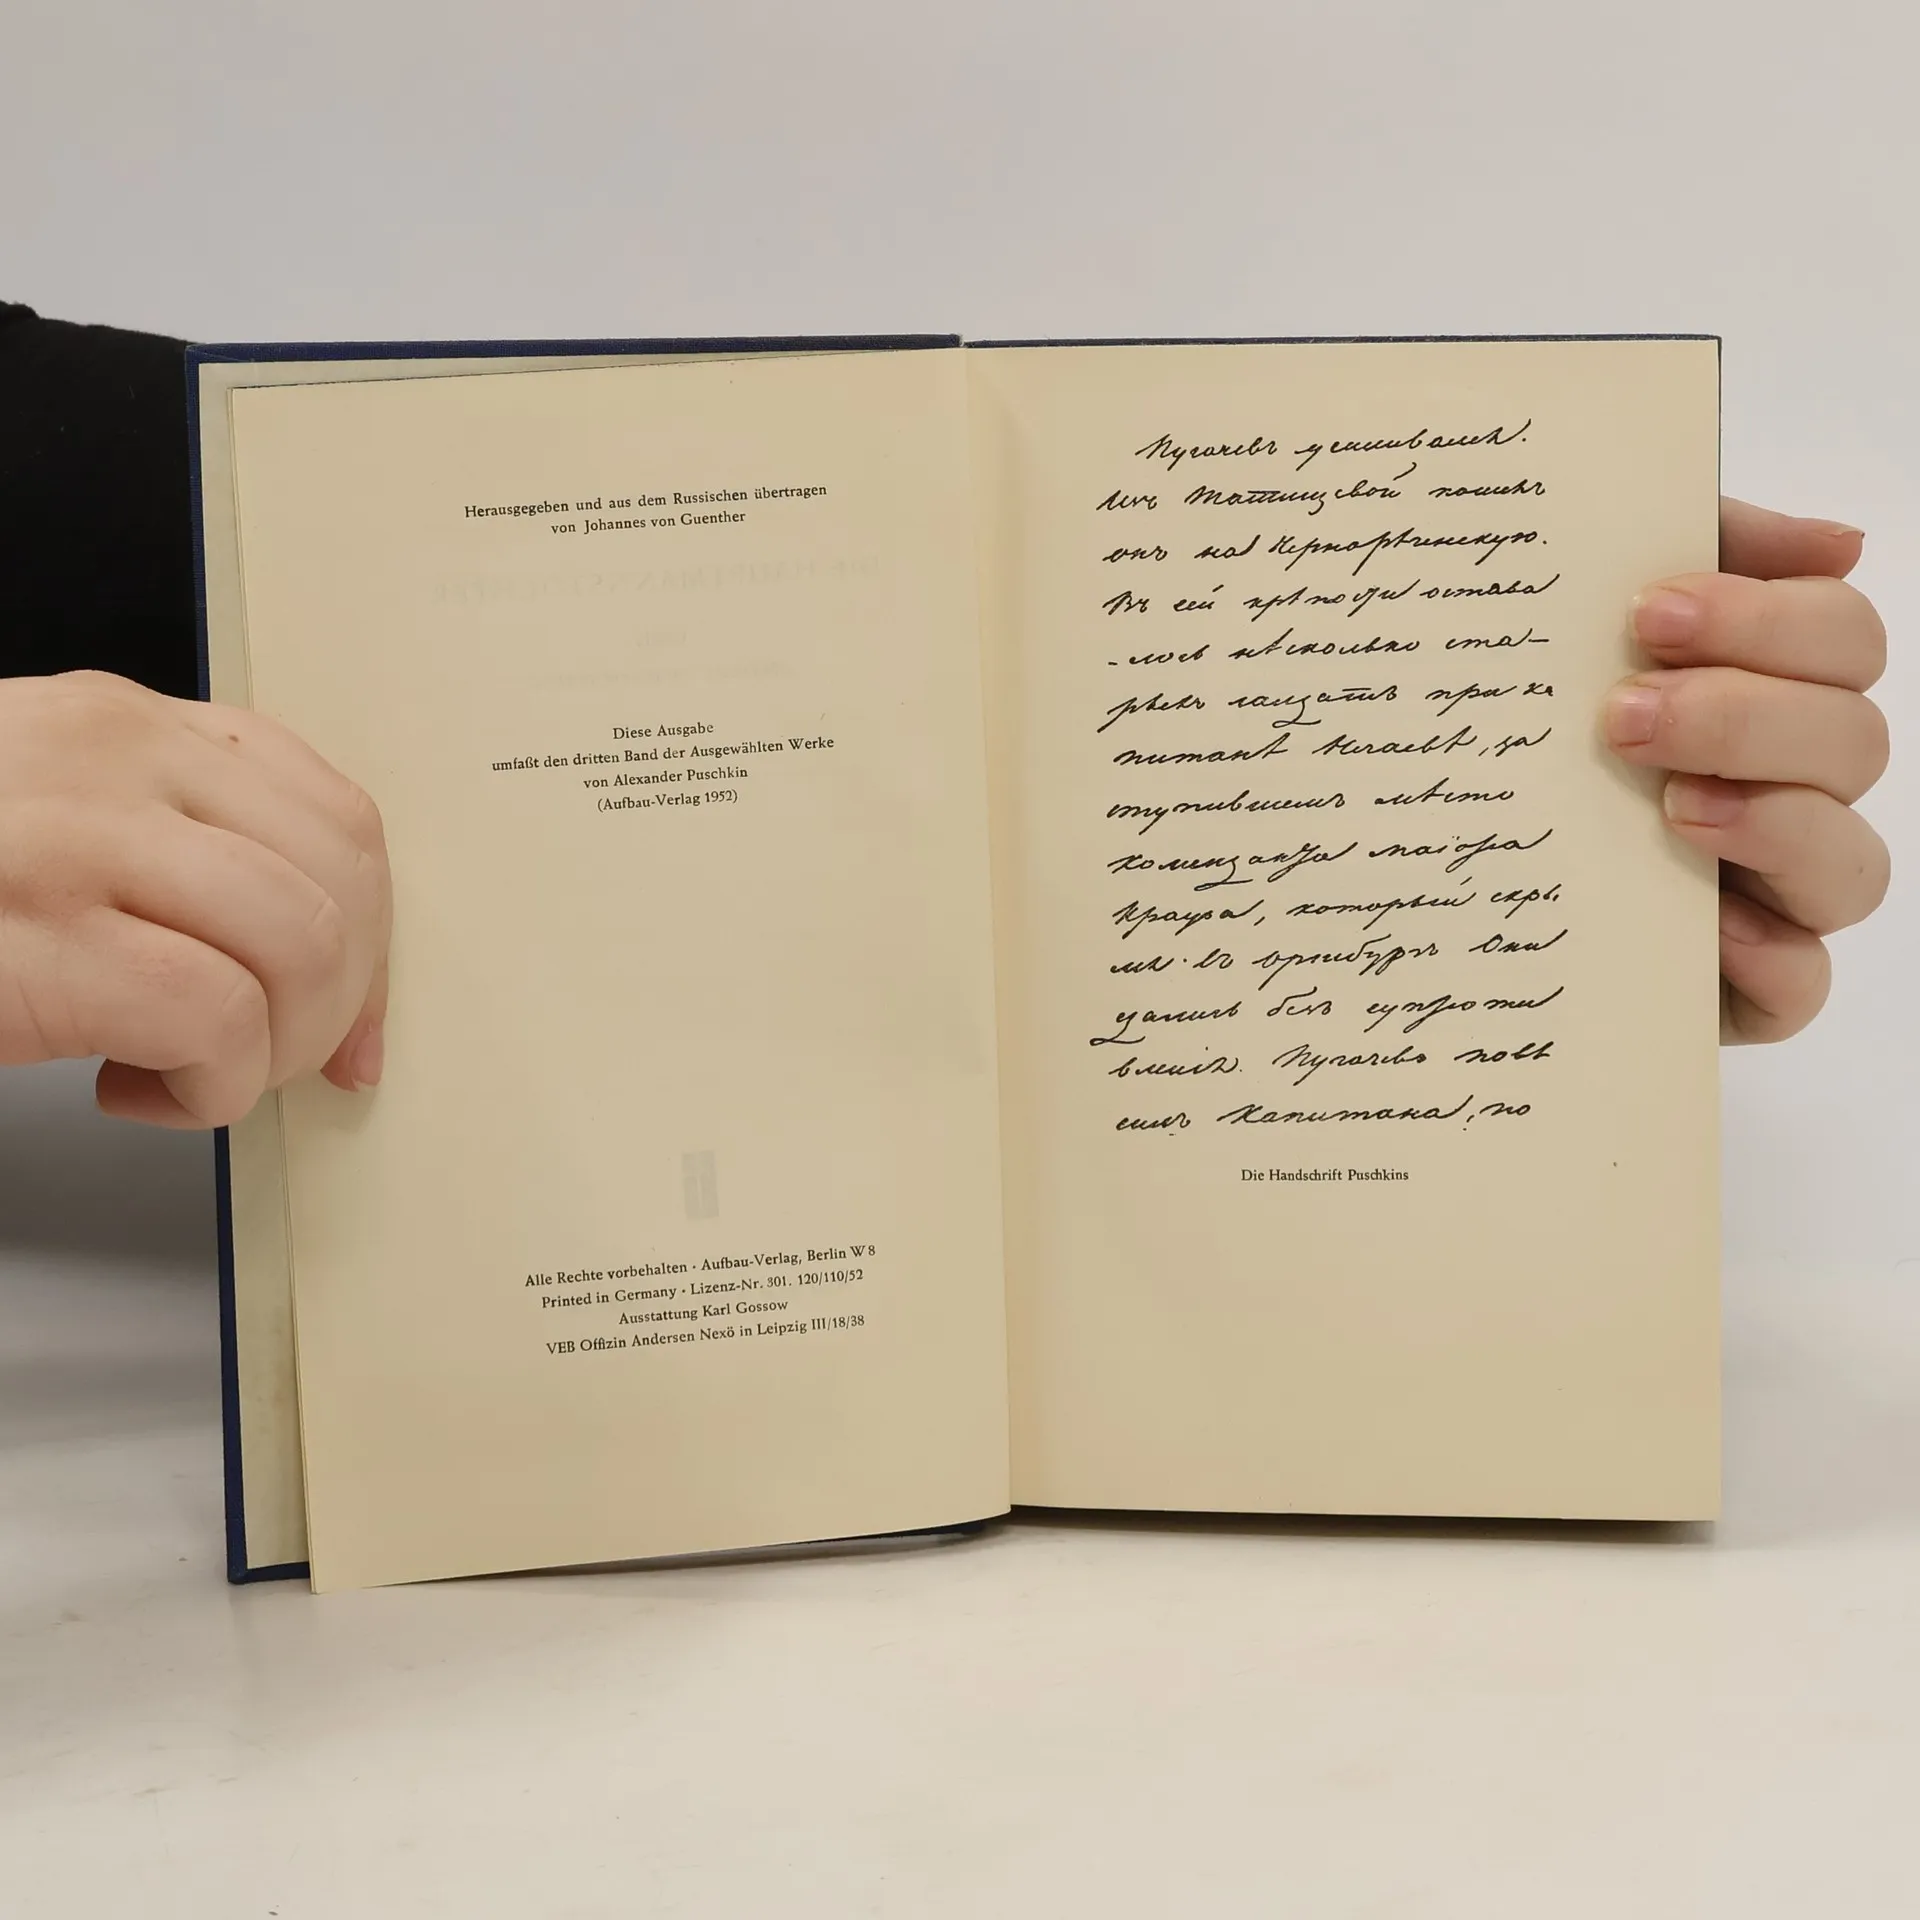 Herausgegeben und aus dem Russischen übertragen
von Johannes von Guenther
Diese Ausgabe
umfaßt den dritten Band der Ausgewählten Werke
von Alexander Puschkin
(Aufbau-Verlag 1952)
Alle Rechte vorbehalten · Aufbau-Verlag, Berlin W 8
Printed in Germany · Lizenz-Nr. 301. 120/110/52
Ausstattung Karl Gossow
VEB Offizin Andersen Nexö in Leipzig III/18/38
Пугачевъ усиливался.
Изъ Татищевой пошелъ
онъ на Чернорѣченскую.
Въ сей крѣпости остава
-лось нѣсколько ста-
рыхъ солдатъ при ка
питанѣ Нечаевѣ, за
ступившемъ мѣсто
коменданта маіора
Крауза, который скры
лся въ Оренбургъ Они
сдались безъ супроти
вленія. Пугачевъ повѣ
силъ Капитана, по
Die Handschrift Puschkins